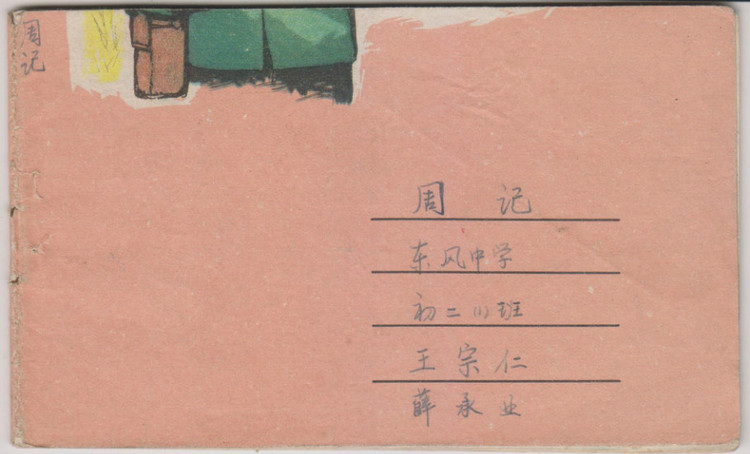 周记
周 记
东风中学
初二(1)班
王宗仁
薛承业